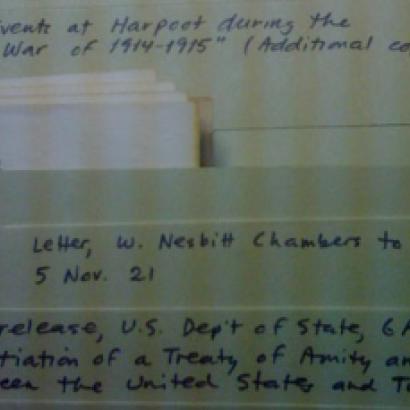 Events at Harpoot during the
War of 1914-1915" (Additional co
Letter, W. Nesbitt Chambers to
5 Nov. 21
release, U.S. Dep't of State, 6 A
tiation of a Treaty of Amity an
een the United States and T